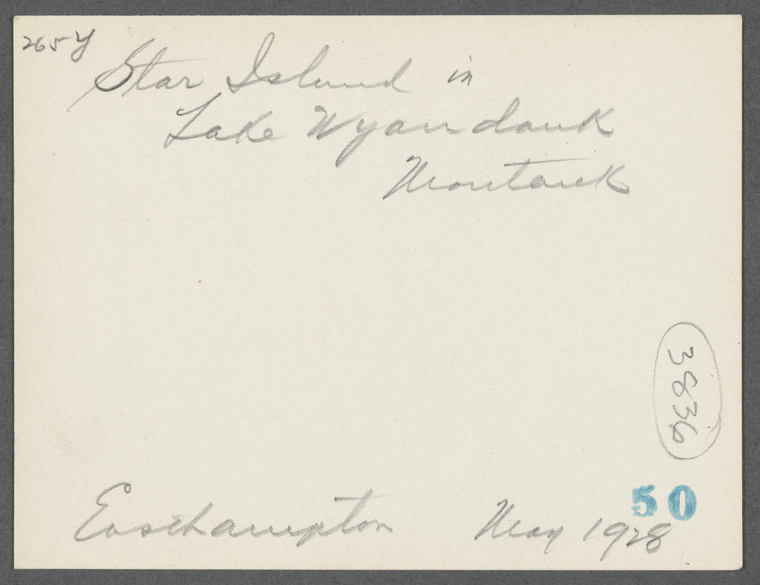 265y
Star Island in
Lake Wyandank
Montauk
3836
50
Easthampton May 1928